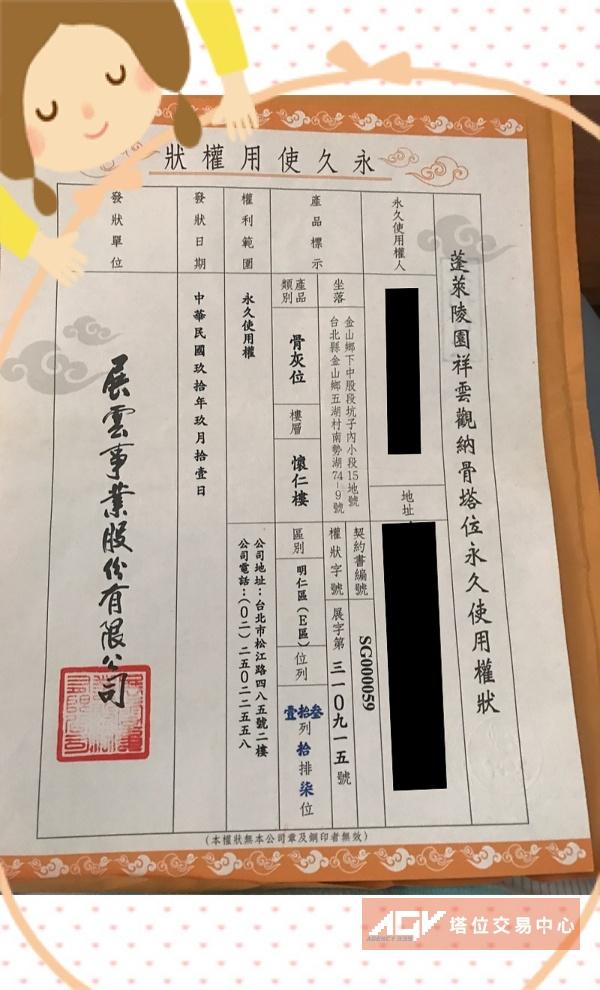 永久使用權狀
蓬萊陵園祥雲觀納骨塔位永久使用權狀
永久使用權人
地址
產品標示
坐落
金山鄉下中股段坑子內小段15地號
台北縣金山鄉五湖村南勢湖74-9號
契約書編號
SG000059
權狀字號
展字第三一0九一五號
產品類別
骨灰位
樓層
懷仁樓
區別
明仁區(E區)
位列
叁拾壹列拾排柒位
權利範圍
永久使用權
公司地址:台北市松江路四八五號二樓
公司電話:(0二)二五0二二五五八
發狀日期
中華民國玖拾年玖月拾壹日
發狀單位
展雲事業股份有限公司
(本權狀無本公司章及鋼印者無效)
AGV 塔位交易中心